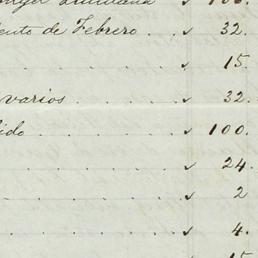 100.
ento de Febrero . ✓ 32.
✓ 15.
varios . . . . . . ✓ 32.
ido . . . . . . . ✓ 100.
. . . . . . . ✓ 24
. . . . . . . ✓ 2
. . . . . . . ✓ 4.
15